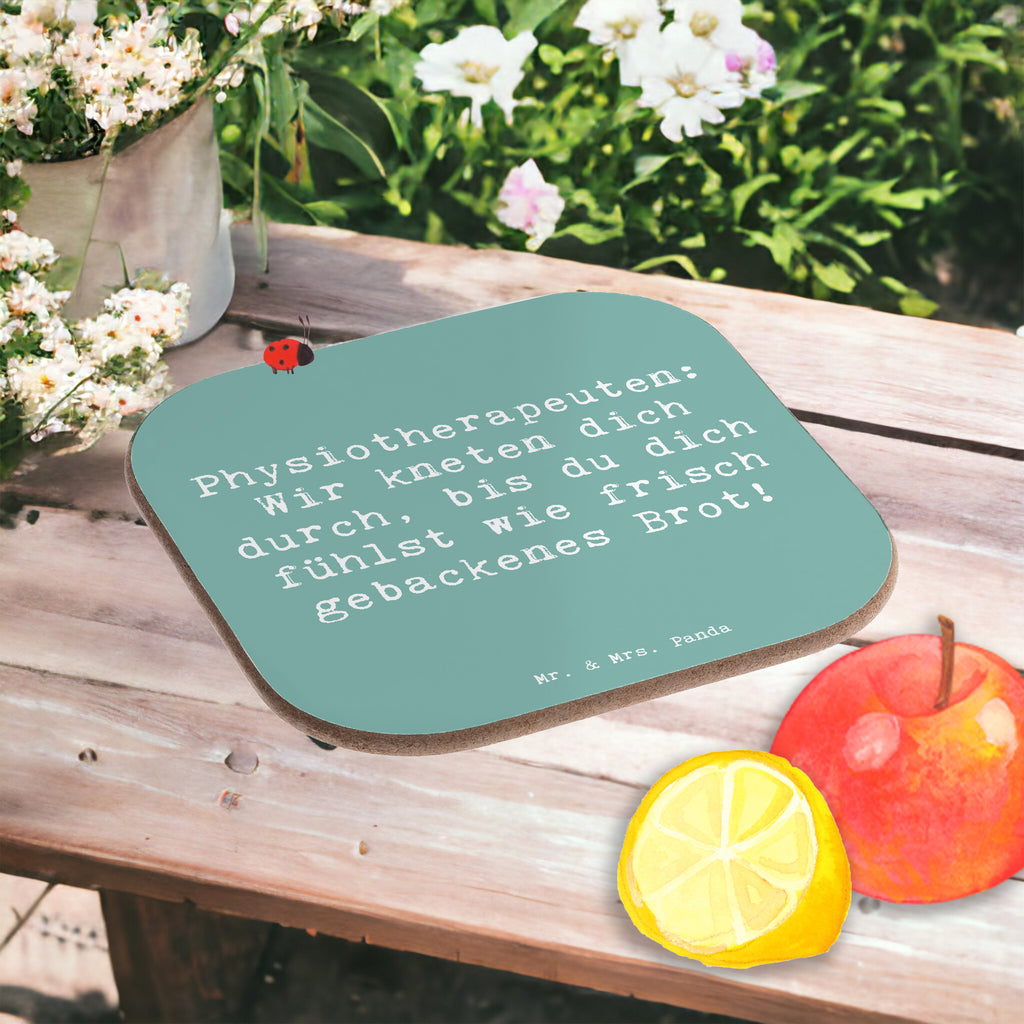 Physiotherapeuten:
Wir kneten dich
durch, bis du dich
fühlst wie frisch
gebackenes Brot!
Mr. & Mrs. Panda